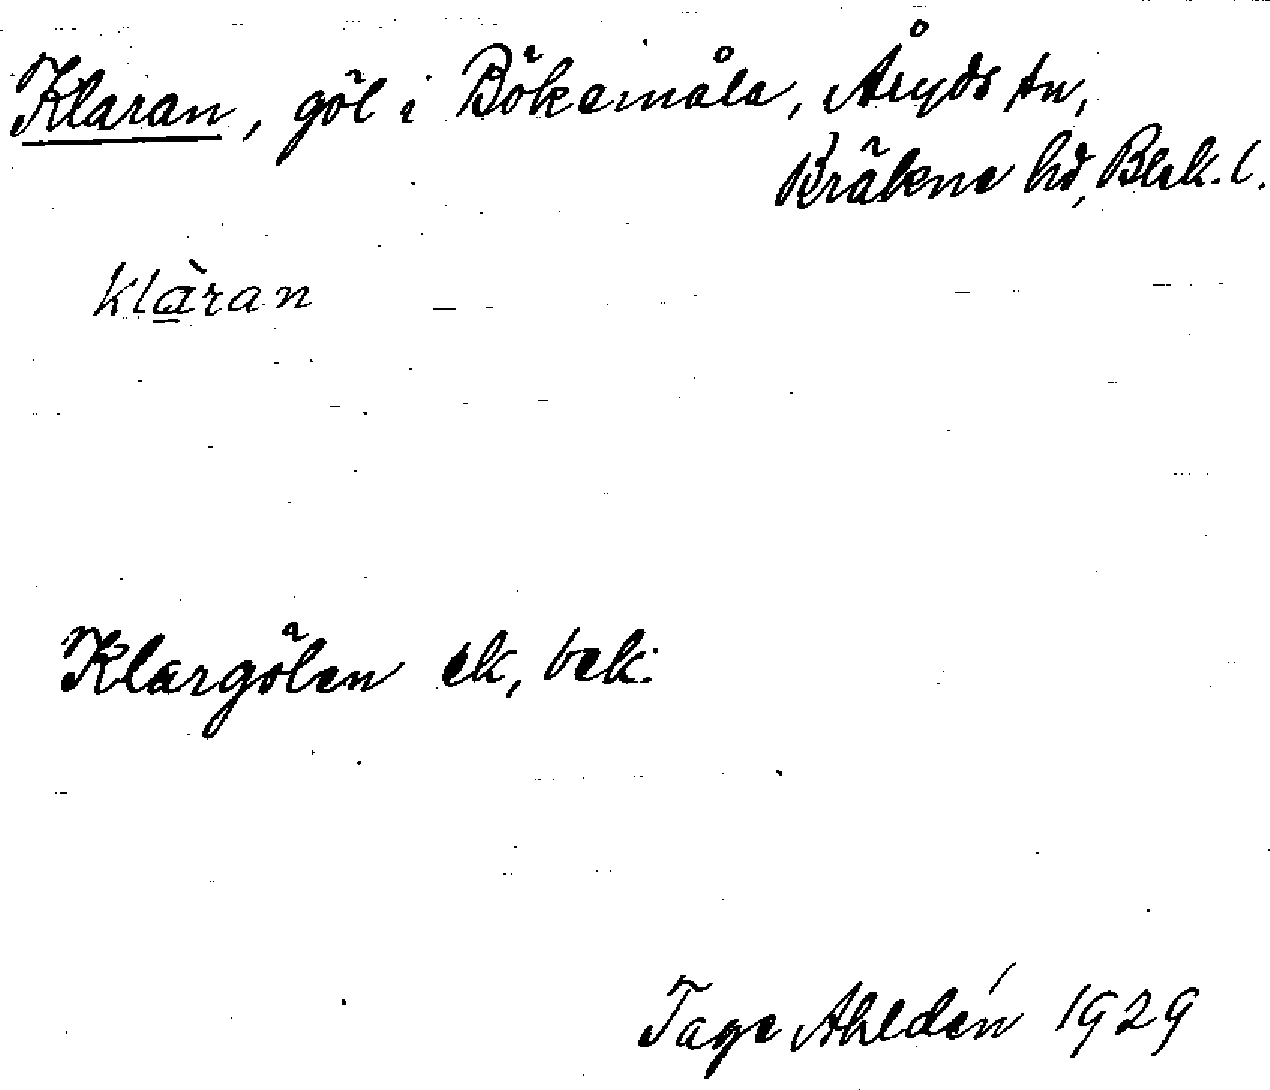 Klaran, göl i Bökemåla, Åryds sn,
Bräkne hd, Blek. l.
klàran
Klargölen ek, bek.
Tage Ahldén 1929